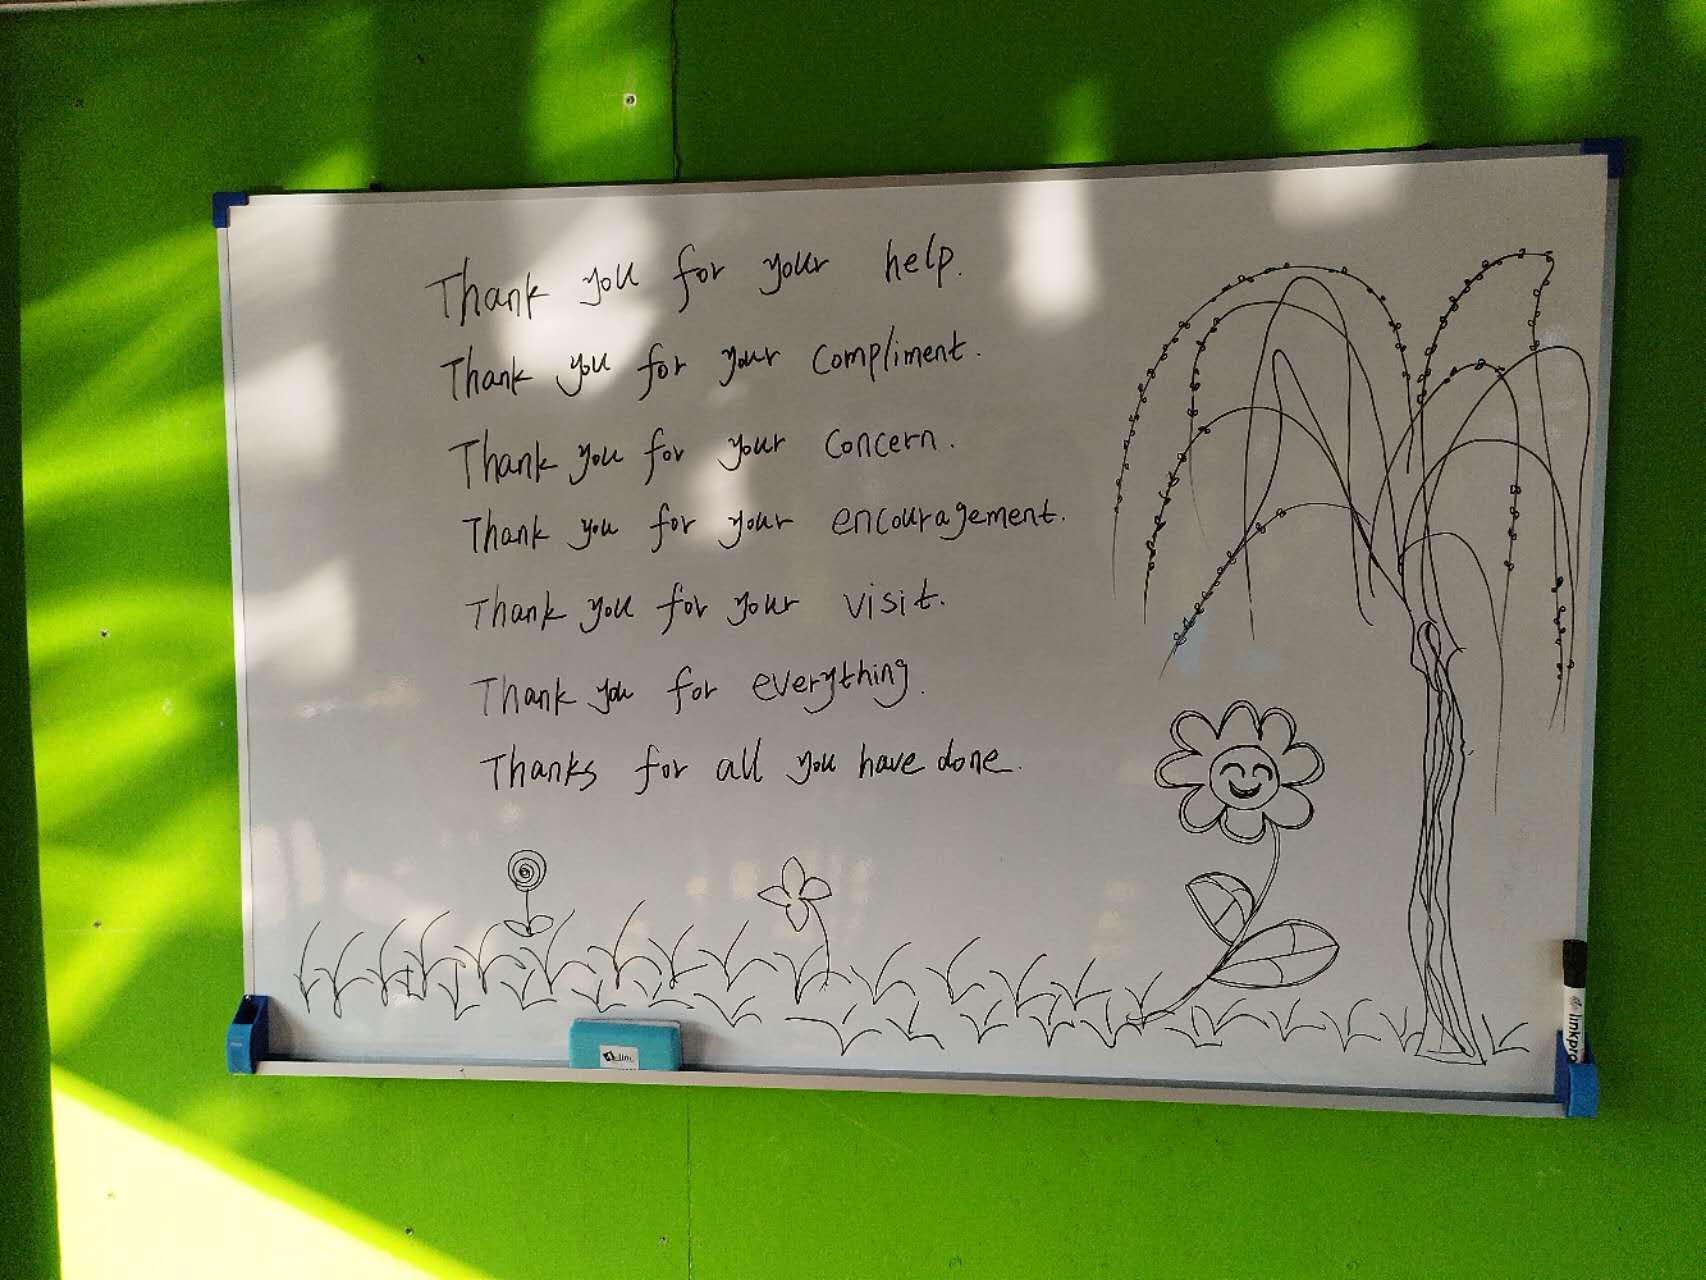 Thank you for your help.
Thank you for your compliment.
Thank you for your concern.
Thank you for your encouragement.
Thank you for your visit.
Thank you for everything.
Thanks for all you have done.
linkpro